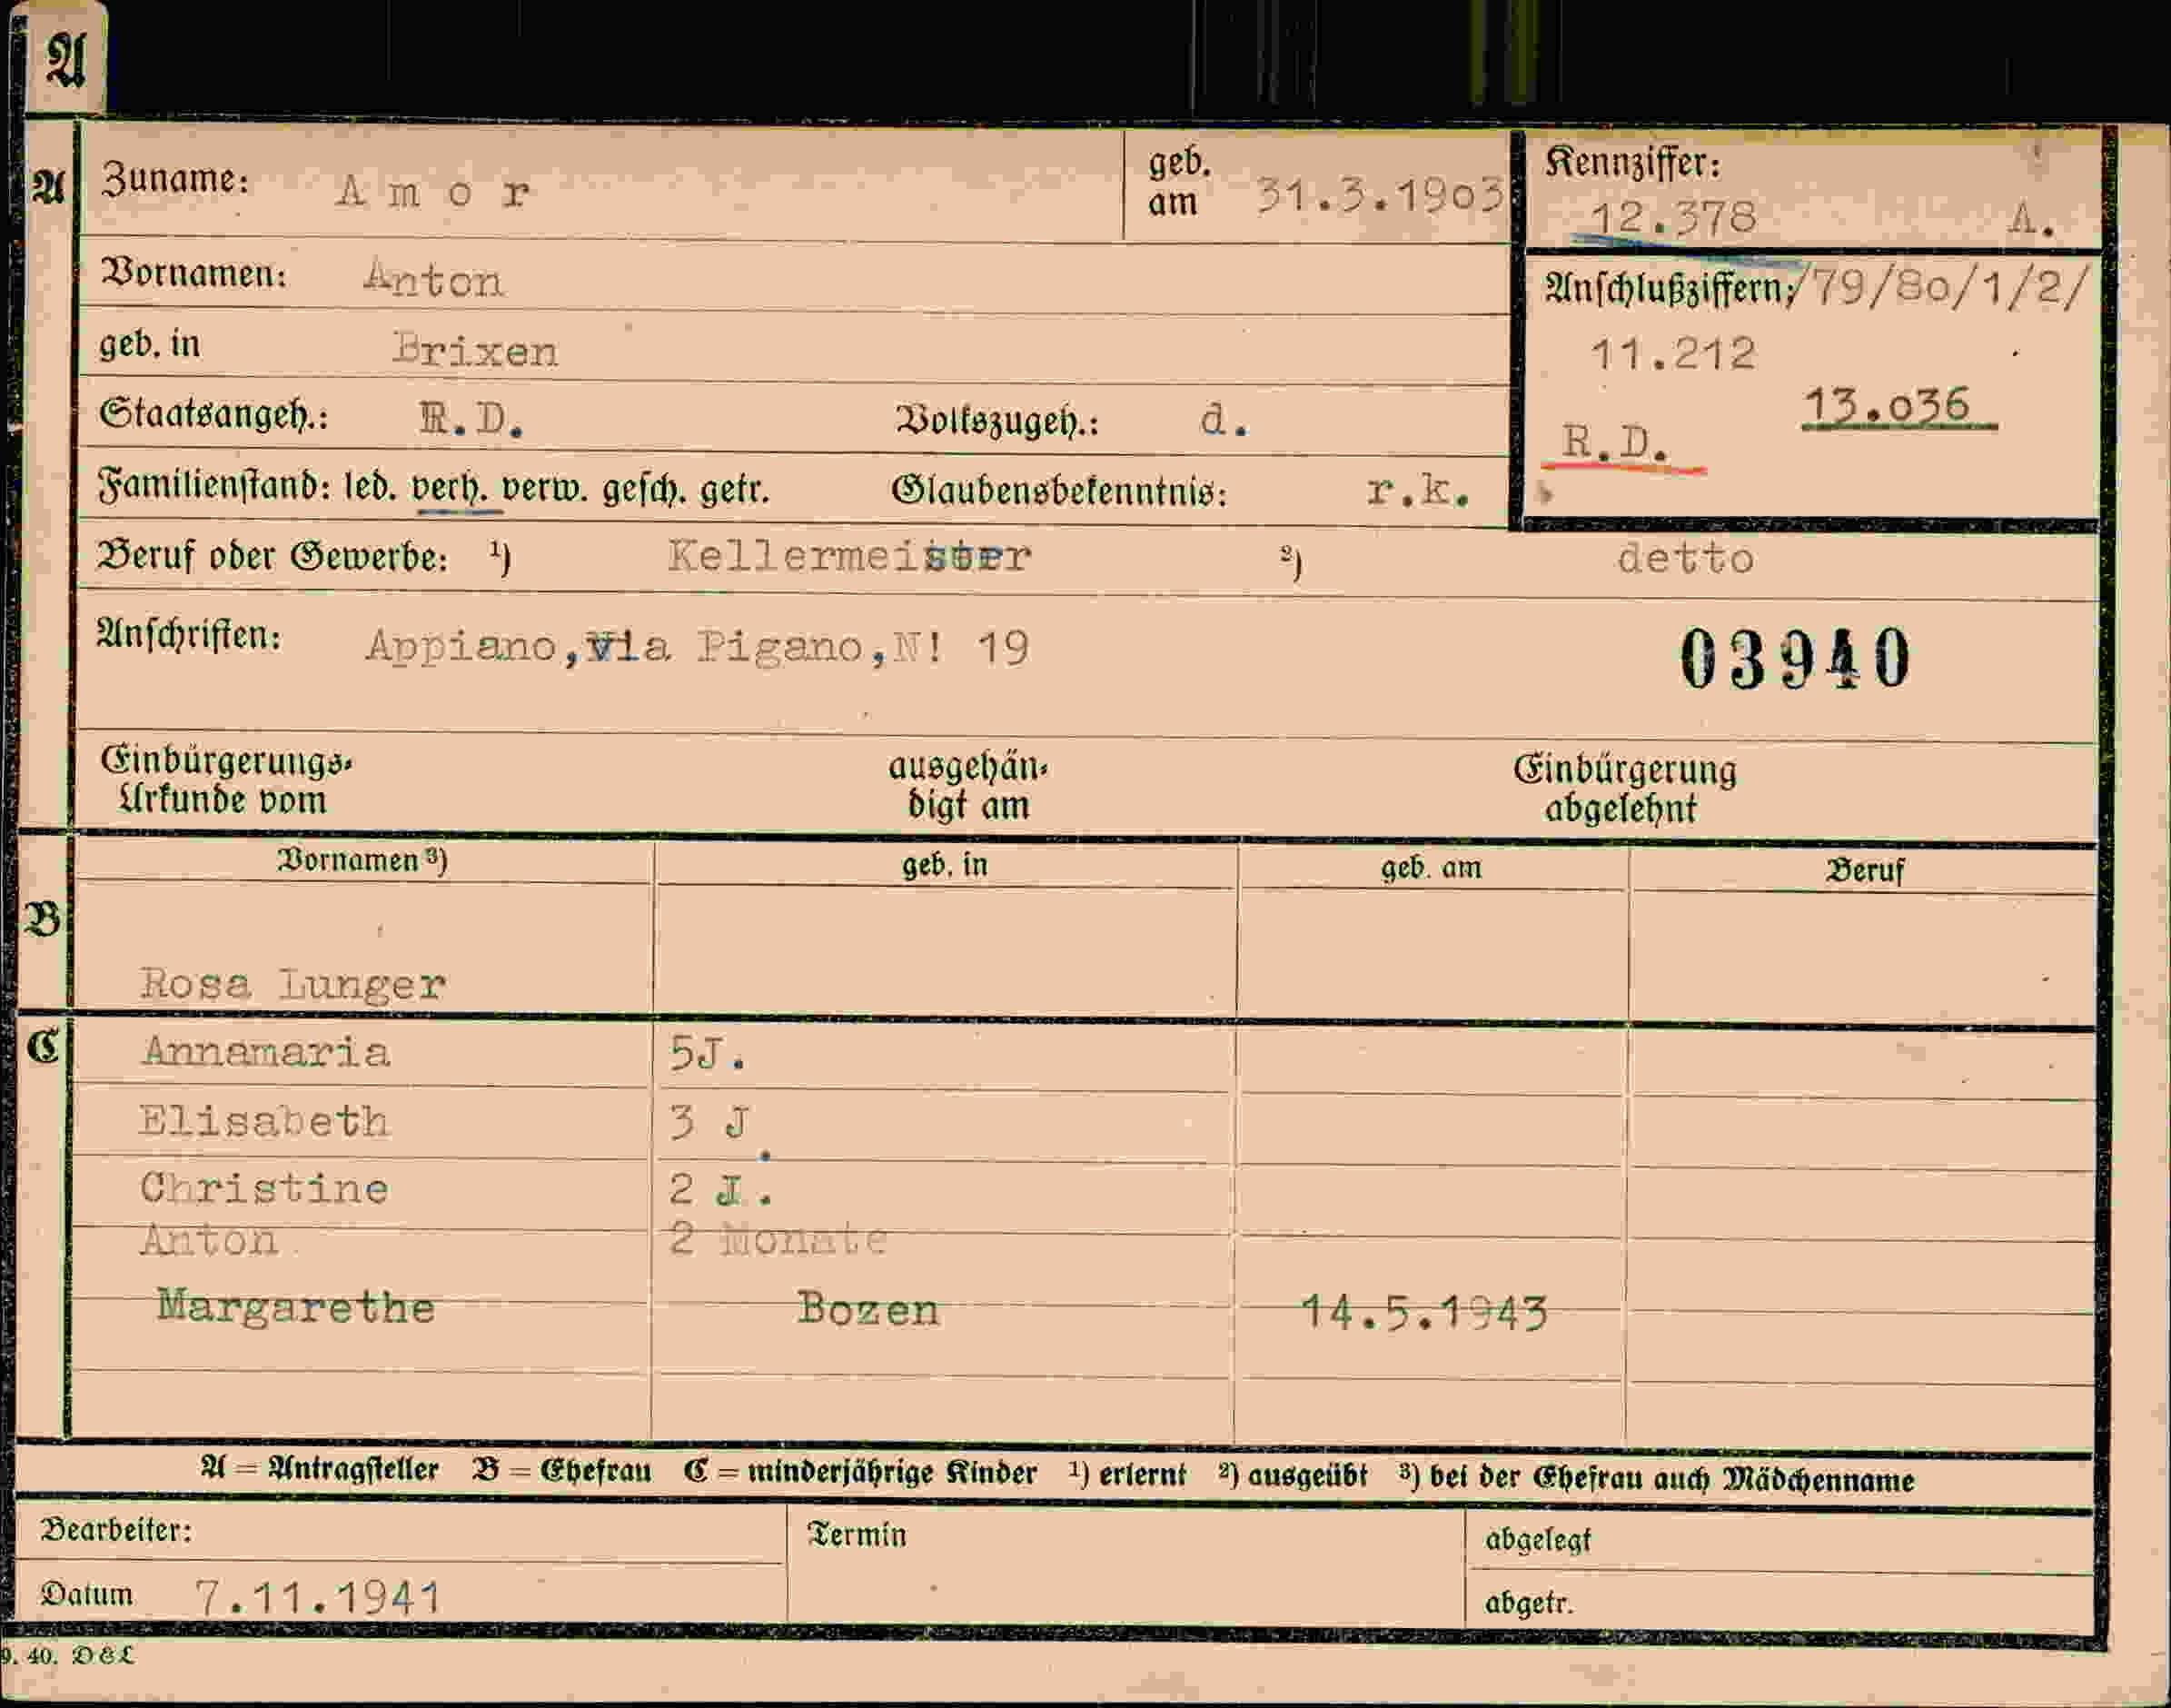 A
A
Zuname: Amor
geb. am 31.3.1903
Kennziffer:
12.378 A.
Vornamen: Anton
Anschlußziffern;/79/80/1/2/
geb. in Brixen
11.212
13.036
Staatsangeh.: R.D. Volkszugeh.: d.
R.D.
Familienstand: led. verh. verw. gesch. getr. Glaubensbekenntnis: r.k.
Beruf oder Gewerbe: ¹) Kellermeister ²) detto
Anschriften: Appiano,via Pigano,N! 19
03940
Einbürgerungs-Urkunde vom
ausgehändigt am
Einbürgerung abgelehnt
Vornamen ³) geb. in geb. am Beruf
B
Rosa Lunger
C
Annamaria 5J.
Elisabeth 3 J.
Christine 2 J.
Anton 2 Monate
Margarethe Bozen 14.5.1943
A = Antragsteller B = Ehefrau C = minderjährige Kinder ¹) erlernt ²) ausgeübt ³) bei der Ehefrau auch Mädchenname
Bearbeiter: Termin abgelegt
Datum 7.11.1941 abgetr.
9. 40. D&L